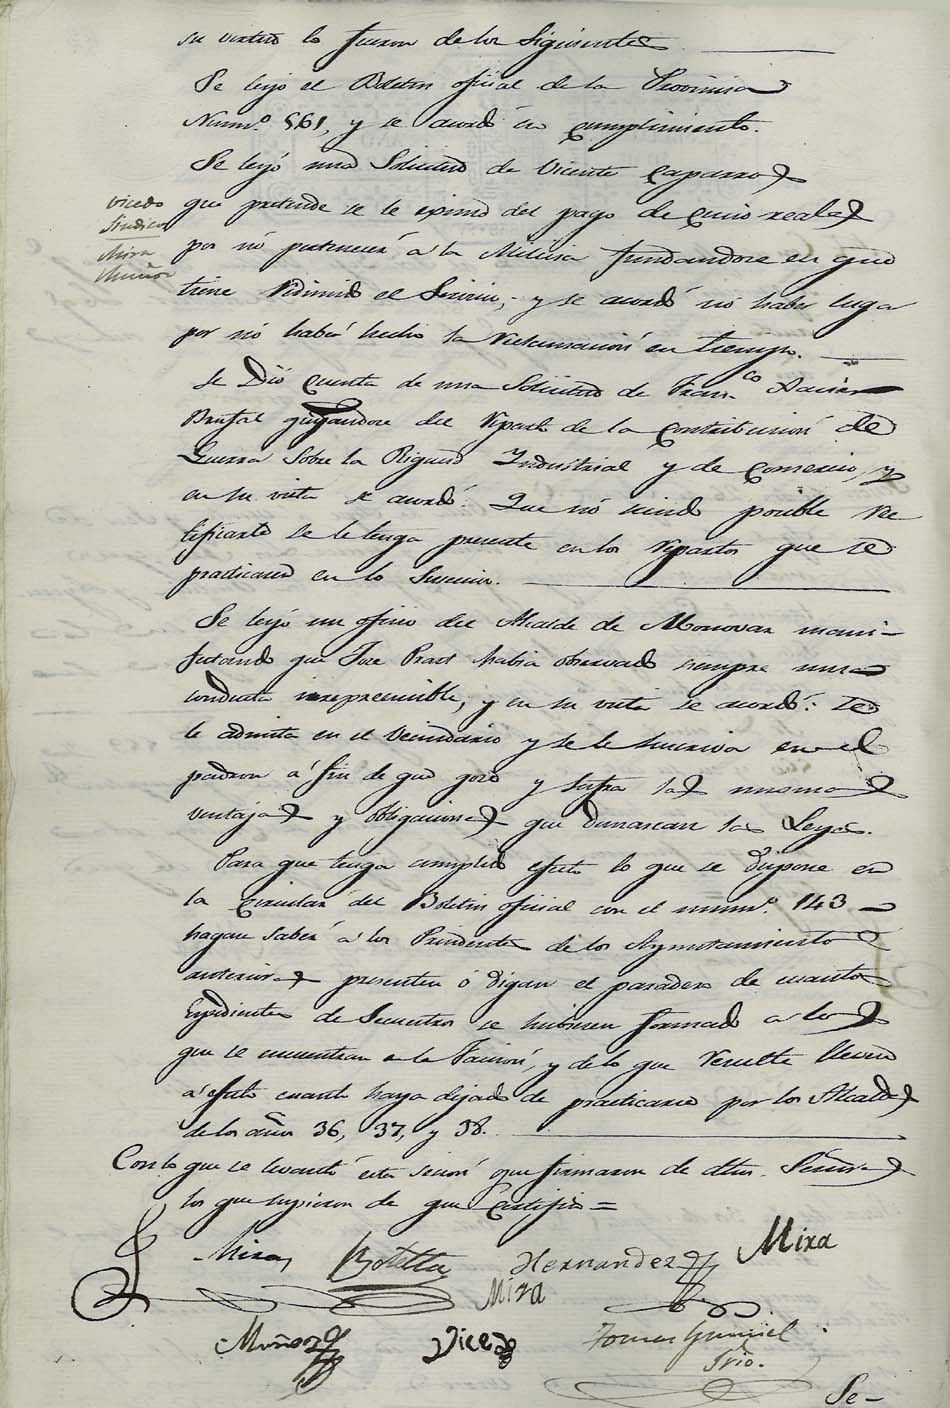 su virtud lo fueron de los siguientes
Se leyó el Boletin oficial de la Provincia
Numº. 561, y se acordó su cumplimiento.
Se leyó una Solicitud de Vicente Caparros
Vicedo
Sindico
Mira
Muñoz
que pretende se le exima del pago de cinco reales
por nó pertenecer á la Milicia fundandose en que
tiene redimido el Servicio; y se acordó nó haber lugar
por nó haber hecho la reclamación en tiempo.
Se Dió cuenta de una Solicitud de Franco. Xavier
Brufal quejandose del reparto de la contribución de
Guerra sobre la Riqueza Industrial y de Comercio, y
en su vista se acordó: Que nó siendo posible rec
tificarlo se le tenga presente en los repartos que se
practicaren en lo sucesivo.
Se leyó un oficio del Alcalde de Monovar mani-
festando que Jose Prast habia observado siempre una
conducta irreprensible, y en su vista se acordó: Se
le admita en el vecindario y se le suscriva en el
padron á fin de que goze y sufra las mismas
ventajas y obligaciones que demarcan las Leyes.
Para que tenga cumplido efecto lo que se dispone en
la circular del Boletin oficial con el numº. 143
hagan saber á los Presidentes de los Ayuntamientos
anteriores presenten ó digan el paradero de cuantos
Expedientes de Secuestros se hubiesen formado a los
que se encuentran en la Facción, y de lo que resulte lleven
á efecto cuanto haya dejado de practicarse por los Alcaldes
de los años 36, 37, y 38.
Con lo que se levantó esta seción que firmaron de dhos. Señores
los que supieron de que Certifico =
Mira Botella Hernandez Mira
Mira
Muñoz Vicedo Tomas
Srio.
Se-